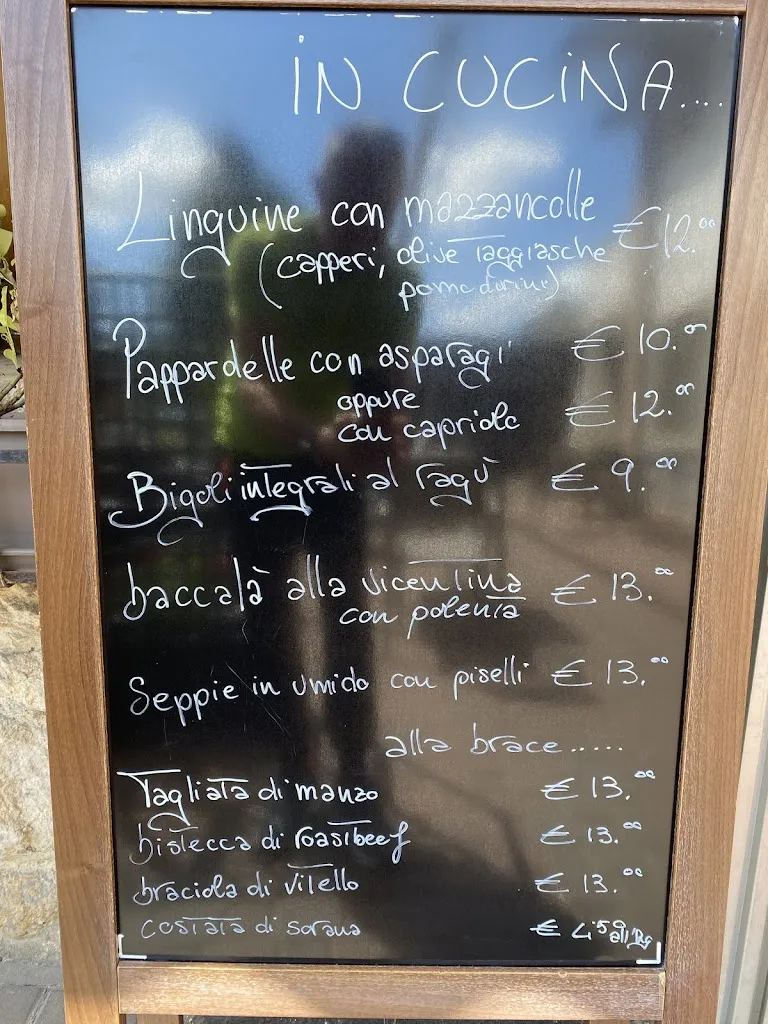 IN CUCINA....
Linguine con mazzancolle € 12.00
(capperi, olive taggiasche
pomodorini)
Pappardelle con asparagi € 10.00
oppure
con capriolo € 12.00
Bigoli integrali al ragù € 9.00
baccalà alla vicentina € 13.00
con polenta
Seppie in umido con piselli € 13.00
alla brace......
Tagliata di manzo € 13.00
bistecca di roastbeef € 13.00
braciola di vitello € 13.00
costata di sorana €